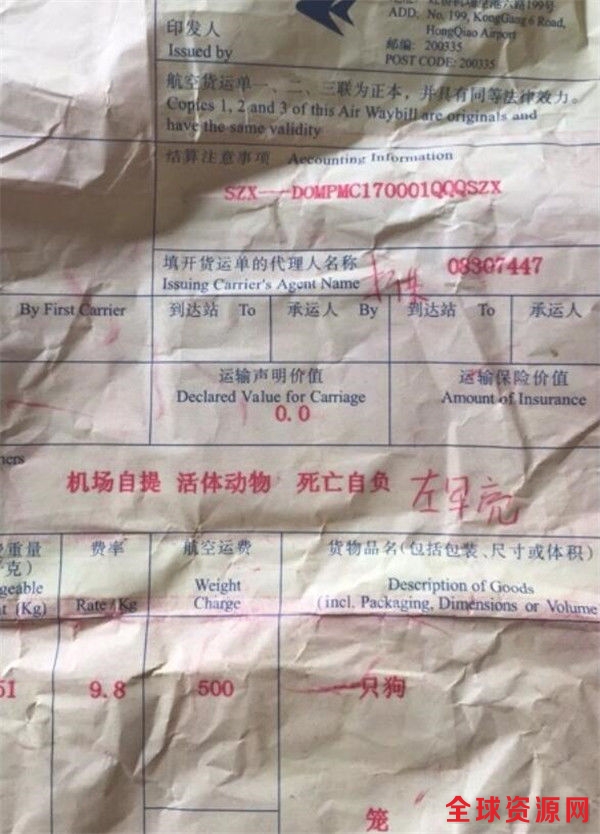 虹桥机场空港六路199号
ADD: No. 199, KongGang 6 Road,
HongQiao Airport
邮编: 200335
POST CODE: 200335
印发人
Issued by
航空货运单一、二、三联为正本，并具有同等法律效力。
Copies 1, 2 and 3 of this Air Waybill are originals and
have the same validity
结算注意事项 Accounting Information
SZX----DOMPMC170001QQQSZX
填开货运单的代理人名称
Issuing Carrier's Agent Name
08307447
By First Carrier
到达站 To
承运人 By
到达站 To
承运人
运输声明价值
Declared Value for Carriage
0.0
运输保险价值
Amount of Insurance
机场自提 活体动物 死亡自负
费率
Rate /Kg
航空运费
Weight
Charge
货物品名(包括包装、尺寸或体积)
Description of Goods
(incl. Packaging, Dimensions or Volume
重量
克)
geable
(Kg)
51
9.8
500
一只狗
笼
全球资源网